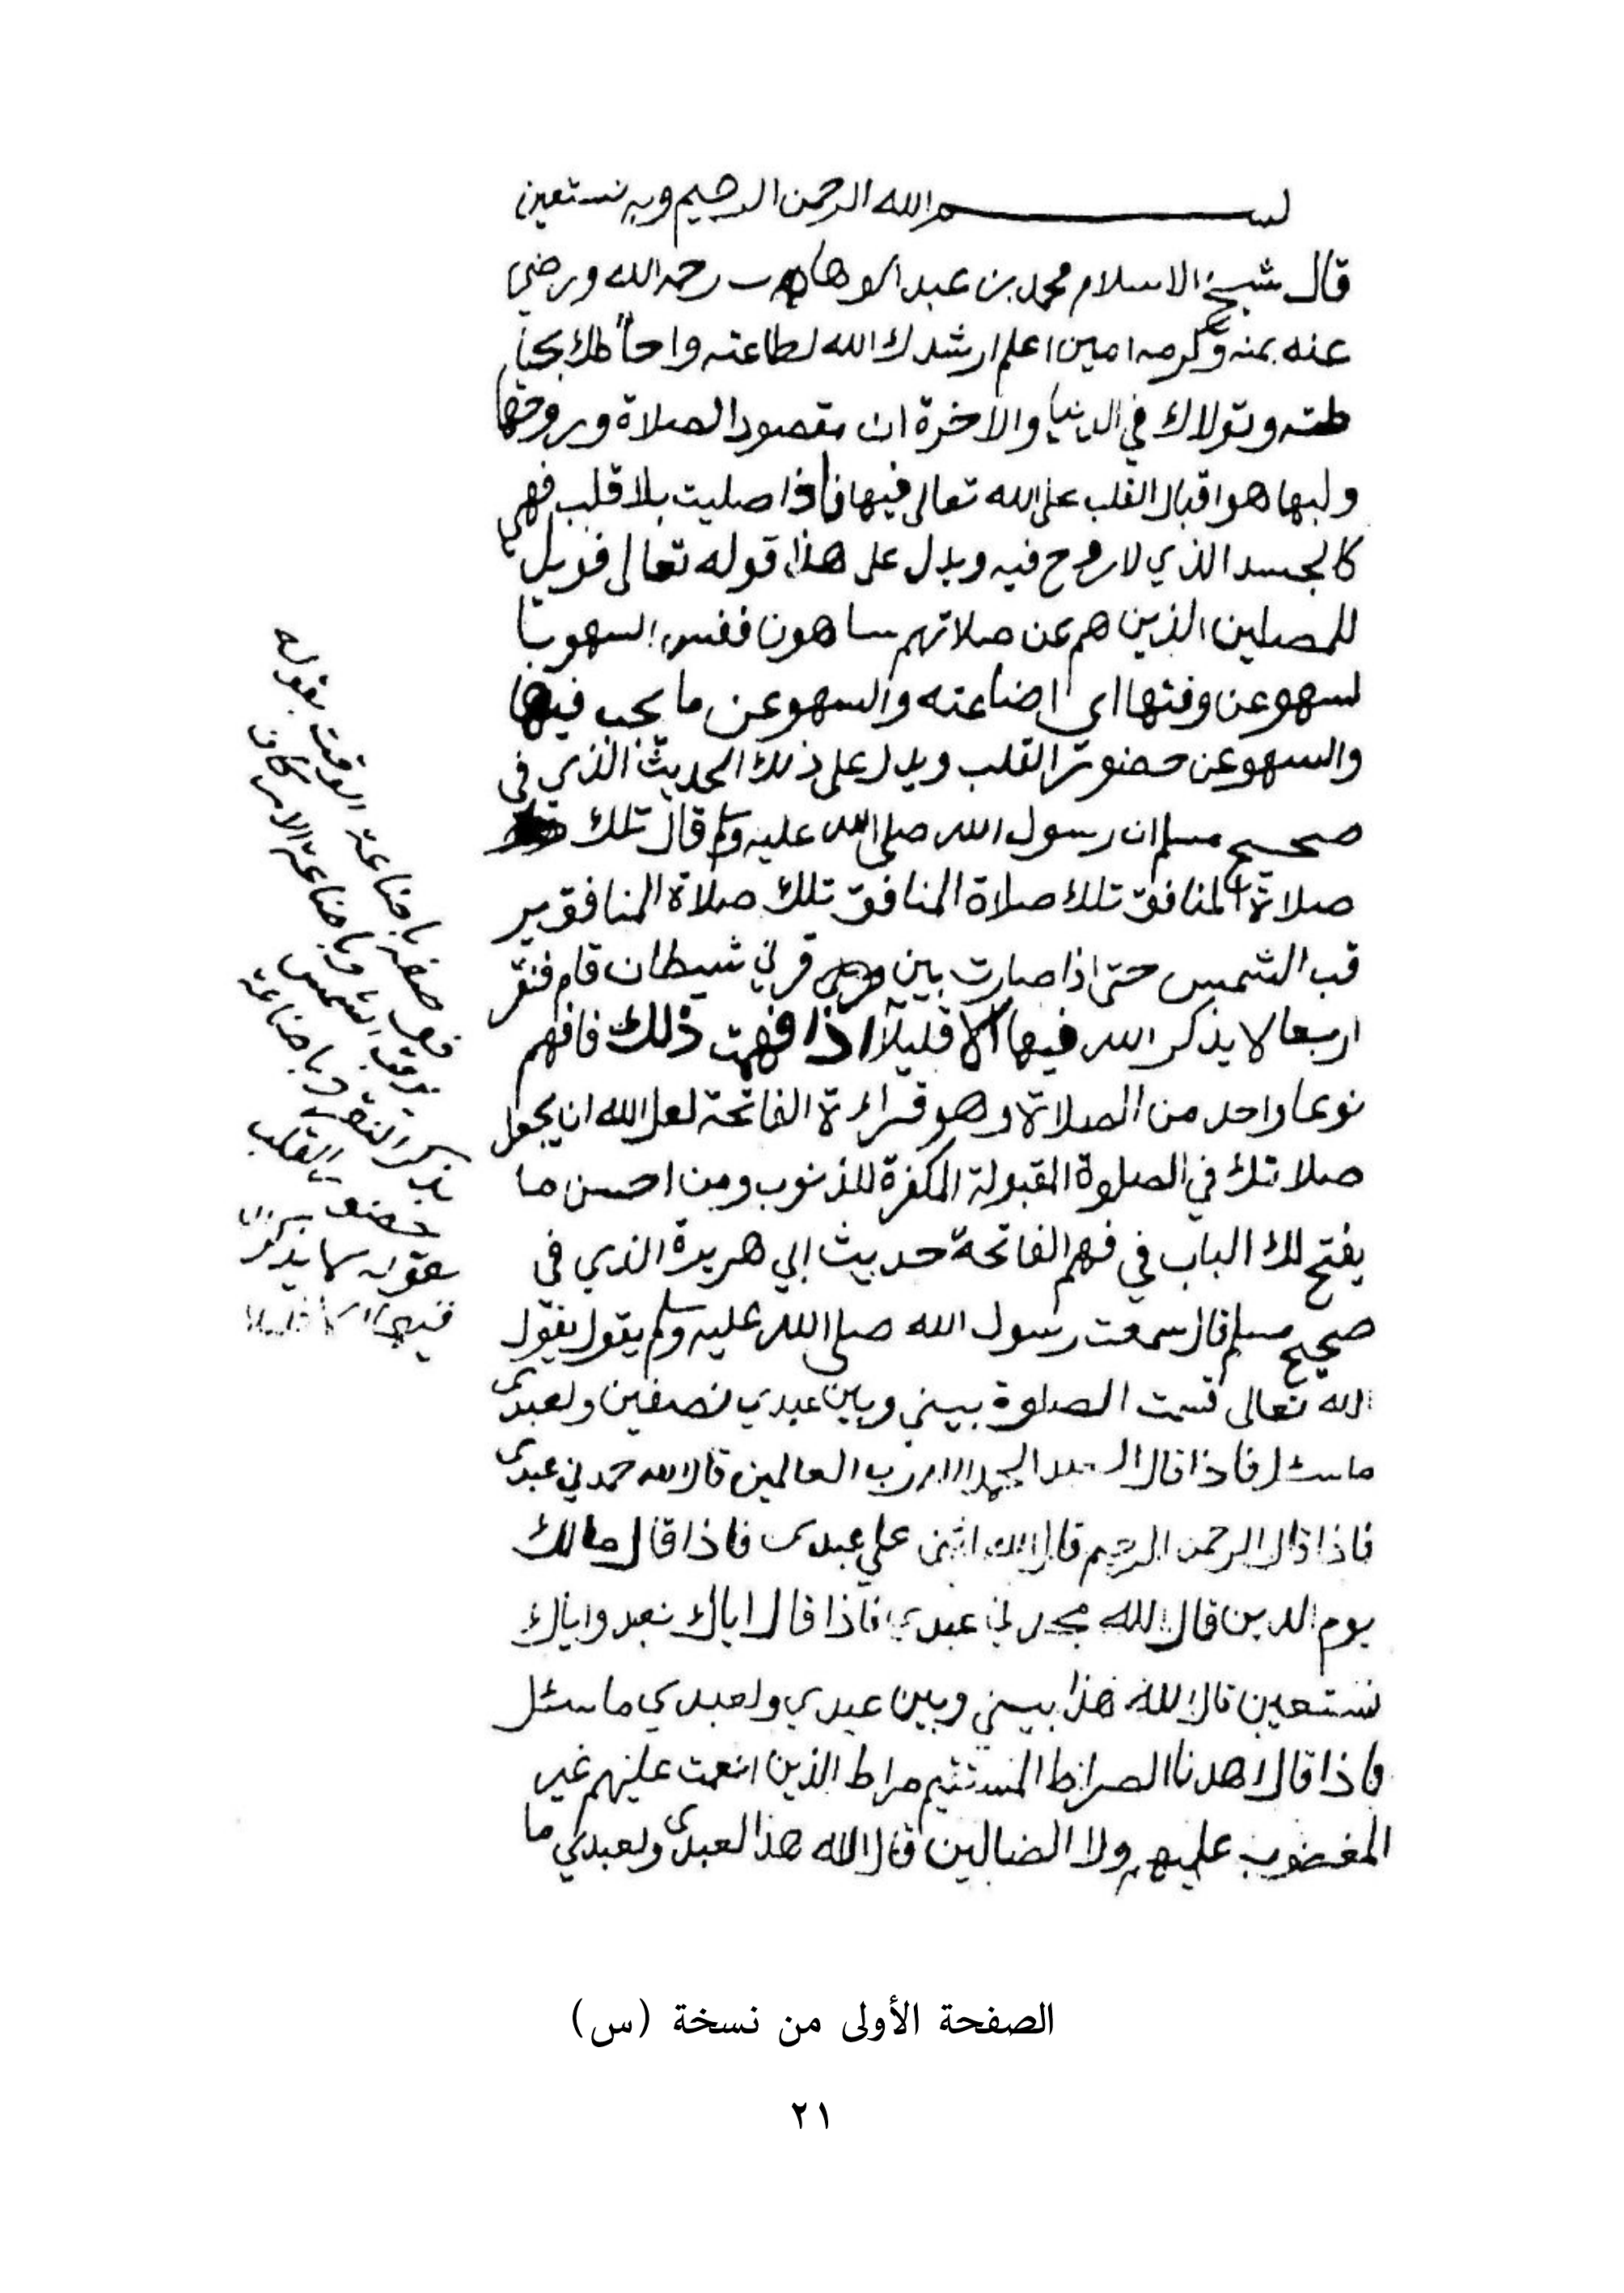 بسم الله الرحمن الرحيم وبه نستعين
قال شيخ الاسلام محمد بن عبد الوهاب رحمه الله ورضي
عنه بمنه وكرمه امين اعلم ارشدك الله لطاعته واحاطك بحيا
طته وتولاك في الدنيا والاخرة ان مقصود الصلاة وروحها
ولبها هو اقبال القلب على الله تعالى فيها فاذا صليت بلا قلب فهي
كالجسد الذي لا روح فيه ويدل على هذا قوله تعالى فويل
للمصلين الذين هم عن صلاتهم ساهون ففسر السهو با
لسهو عن وقتها اي اضاعته والسهو عن ما يجب فيها
والسهو عن حضور القلب ويدل على ذلك الحديث الذي في
صحيح مسلم ان رسول الله صلى الله عليه وسلم قال تلك
صلاة المنافق تلك صلاة المنافق تلك صلاة المنافق ير
قب الشمس حتى اذا صارت بين قرني شيطان قام فنقر
اربعا لا يذكر الله فيها الا قليلا اذا فهمت ذلك فافهم
نوعا واحد من الصلاة وهو قراءة الفاتحة لعل الله ان يجعل
صلاتك في الصلوة المقبولة المكفرة للذنوب ومن احسن ما
يفتح لك الباب في فهم الفاتحة حديث ابي هريرة الذي في
صحيح مسلم قال سمعت رسول الله صلى الله عليه وسلم يقول يقول
الله تعالى قسمت الصلوة بيني وبين عبدي نصفين ولعبدي
ما سئل فاذا قال العبد الحمد لله رب العالمين قال الله حمدني عبدي
فاذا قال الرحمن الرحيم قال الله اثنى علي عبدي فاذا قال مالك
يوم الدين قال الله مجدني عبدي فاذا قال اياك نعبد واياك
نستعين قال الله هذا بيني وبين عبدي ولعبدي ما سئل
فاذا قال اهدنا الصراط المستقيم صراط الذين انعمت عليهم غير
المغضوب عليهم ولا الضالين قال الله هذا لعبدي ولعبدي ما
باضاعة الوقت بقوله
يرقب الشمس وباضاعة الاركان
بذكر النقر وباضاعة
حضور القلب
بقوله لا يذكر الله
فيها الا قليلا
الصفحة الأولى من نسخة (س)
٢١